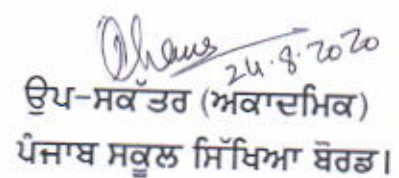 24.8.2020
ਉਪ-ਸਕੱਤਰ (ਅਕਾਦਮਿਕ)
ਪੰਜਾਬ ਸਕੂਲ ਸਿੱਖਿਆ ਬੋਰਡ।